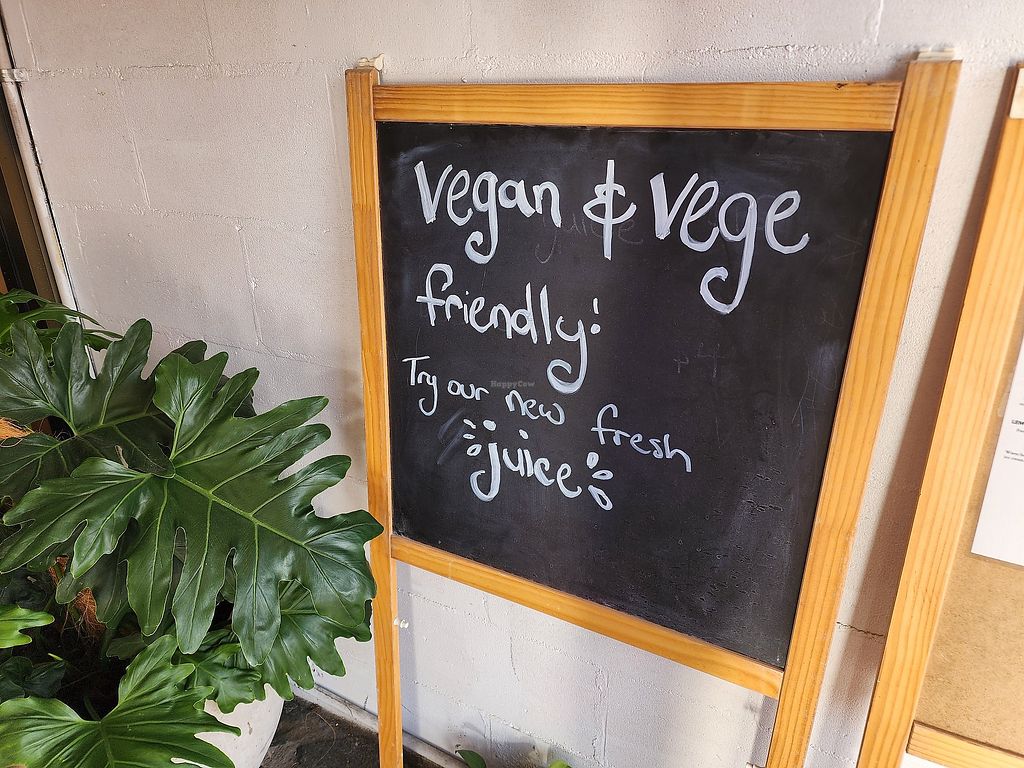 vegan & vege
friendly!
Try our new
fresh
juice
HappyCow